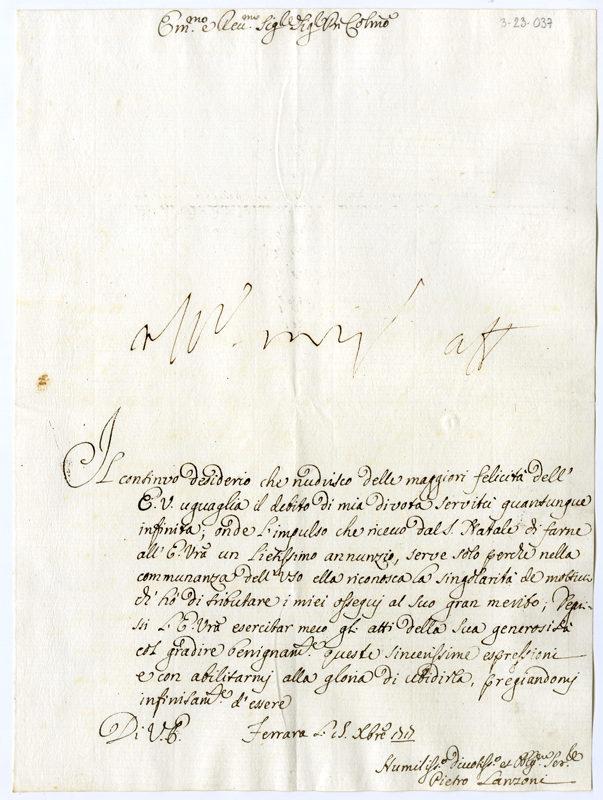 Em.mo e Reu.mo Sig.r Sig.r Pn Colmo
3-23-037
Il continvo desiderio che nudrisco delle maggiori felicità dell'
E. V. uguaglia il debito di mia divota servitù quantunque
infinita; onde l'impulso che riceuo dal S. Natale di farne
all' E. Vrã un lietissimo annunzio, serve solo perche nella
communanza dell' Vso ella riconosca la singolarità de motivi
ch' hò di tributare i miei ossequj al suo gran merito;
si L' E. Vrã esercitar meco gl' atti della sua generosità
col gradire benignam.te queste sincerissime espressioni
e con abilitarmj alla gloria di ubidirla, pregiandomj
infinitam.te d'essere
Di V. E. Ferrara Xbre 1717
Humiliss.o Diuotiss.o et Obg.mo Ser.re
Pietro Lanzoni